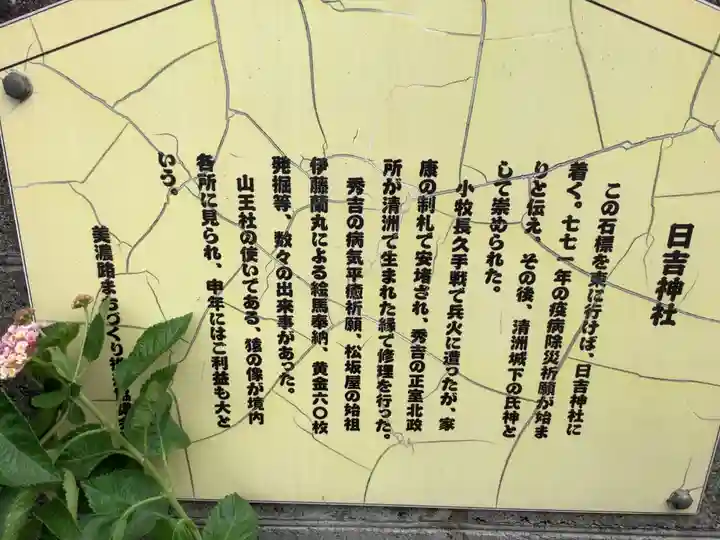 日吉神社
この石標を東に行けば、日吉神社に
着く。七七一年の疫病除災祈願が始ま
りと伝え、その後、清洲城下の氏神と
して崇められた。
小牧長久手戦で兵火に遭ったが、家
康の制札で安堵され、秀吉の正室北政
所が清洲で生まれた縁で修理を行った。
秀吉の病気平癒祈願、松坂屋の始祖
伊藤蘭丸による絵馬奉納、黄金六〇枚
発掘等、数々の出来事があった。
山王社の使いである、猿の像が境内
各所に見られ、申年にはご利益も大と
いう。
美濃路まちづくり